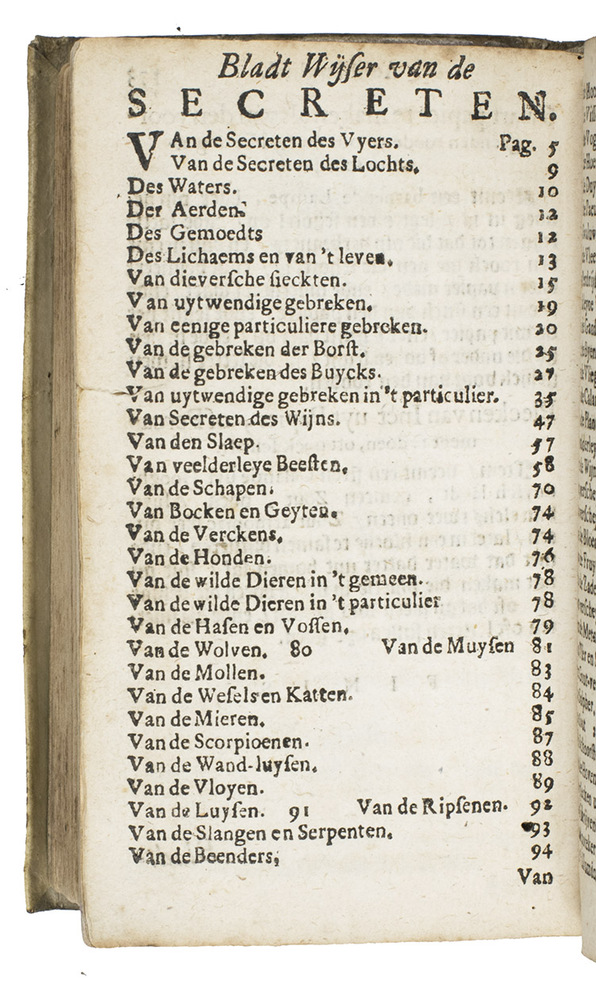 Bladt Wijſer van de
SECRETEN.
VAn de Secreten des Vyers. Pag. 5
Van de Secreten des Lochts. 9
Des Waters. 10
Der Aerden. 12
Des Gemoedts 12
Des Lichaems en van 't leven. 13
Van dieverſche ſieckten. 15
Van uytwendige gebreken. 19
Van eenige particuliere gebreken. 20
Van de gebreken der Borſt. 25
Van de gebreken des Buycks. 27
Van uytwendige gebreken in 't particulier. 35
Van Secreten des Wijns. 47
Van den Slaep. 57
Van veelderleye Beeſten. 58
Van de Schapen. 70
Van Bocken en Geyten. 74
Van de Verckens. 74
Van de Honden. 76
Van de wilde Dieren in 't gemeen. 78
Van de wilde Dieren in 't particulier 78
Van de Haſen en Voſſen. 79
Van de Wolven. 80 Van de Muyſen 81
Van de Mollen. 83
Van de Weſels en Katten. 84
Van de Mieren. 85
Van de Scorpioenen. 87
Van de Wand-luyſen. 88
Van de Vloyen. 89
Van de Luyſen. 91 Van de Ripſenen. 92
Van de Slangen en Serpenten. 93
Van de Beenders, 94
Van